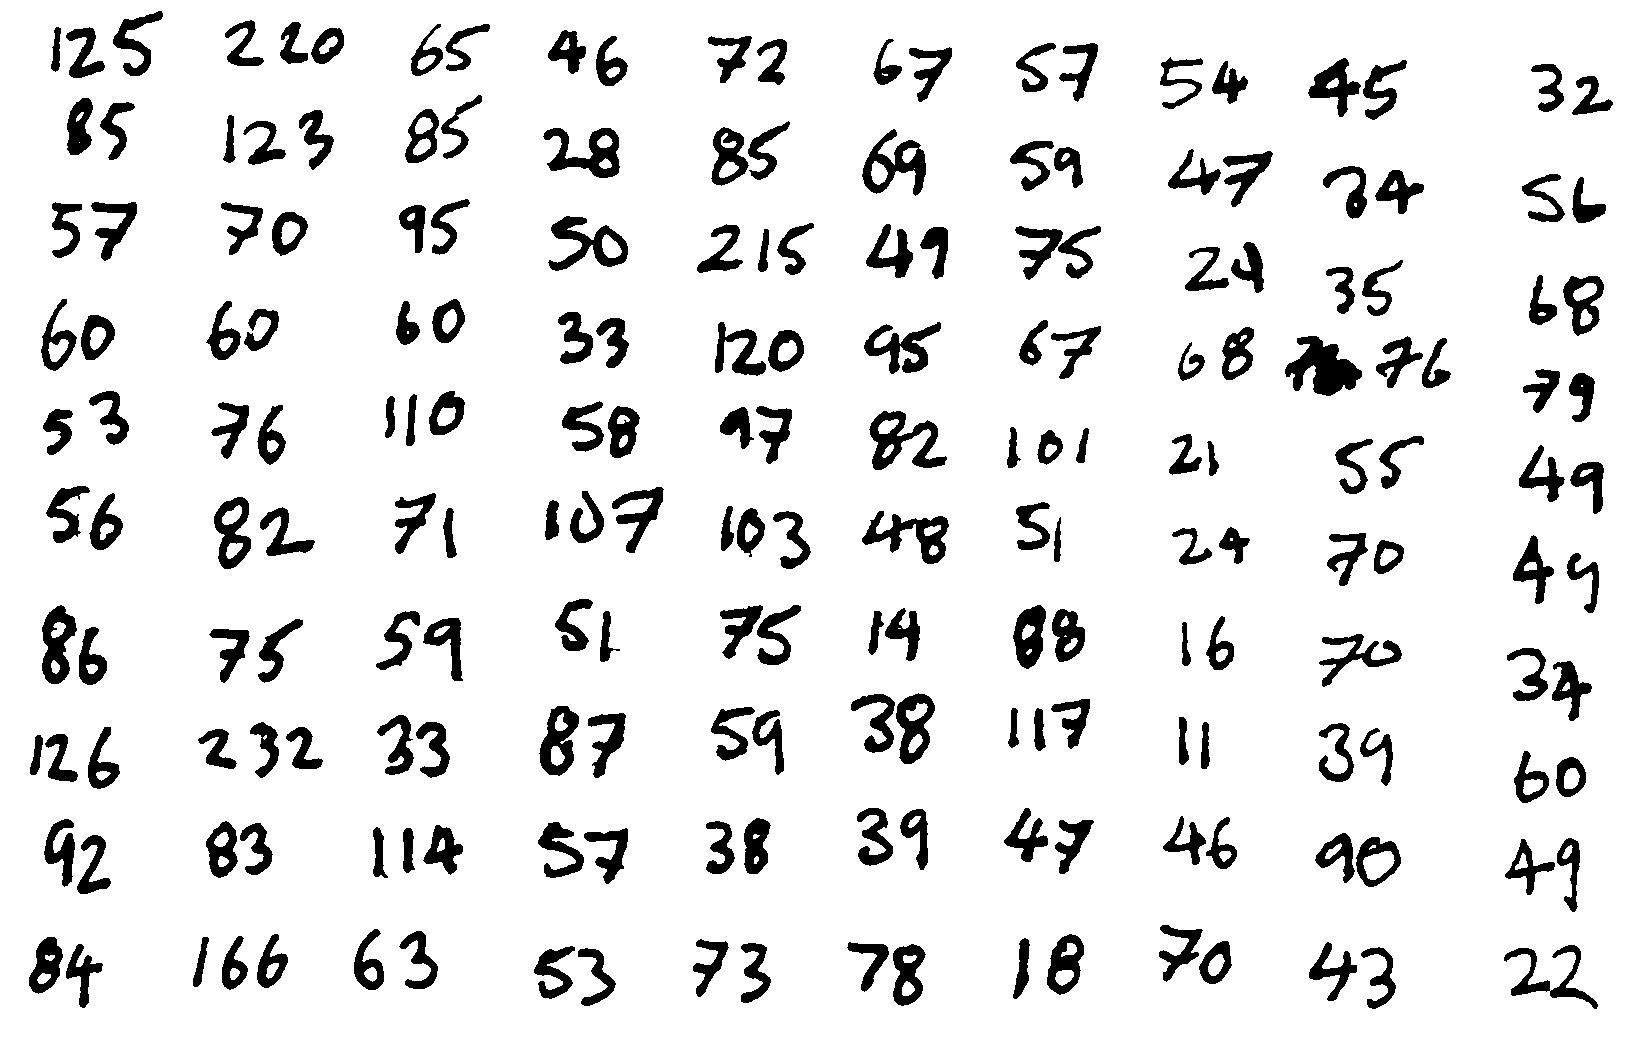 125 220 65 46 72 67 57 54 45 32
85 123 85 28 85 69 59 47 34 56
57 70 95 50 215 49 75 24 35 68
60 60 60 33 120 95 67 68 76 79
53 76 110 58 97 82 101 21 55 49
56 82 71 107 103 48 51 24 70 49
86 75 59 51 75 14 88 16 70 34
126 232 33 87 59 38 117 11 39 60
92 83 114 57 38 39 47 46 90 49
84 166 63 53 73 78 18 70 43 22